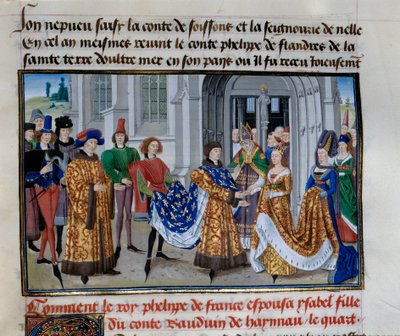 son nepueu saisy la conte de soissons et la seignourie de nelle
En cel an meismes reuint le conte phelype de flandres de la
sainte terre doultre mer en son pays ou il fu receu ioieusement
Comment le roy phelype de france espousa ysabel fille
du conte Bauduin de haynnau le quart